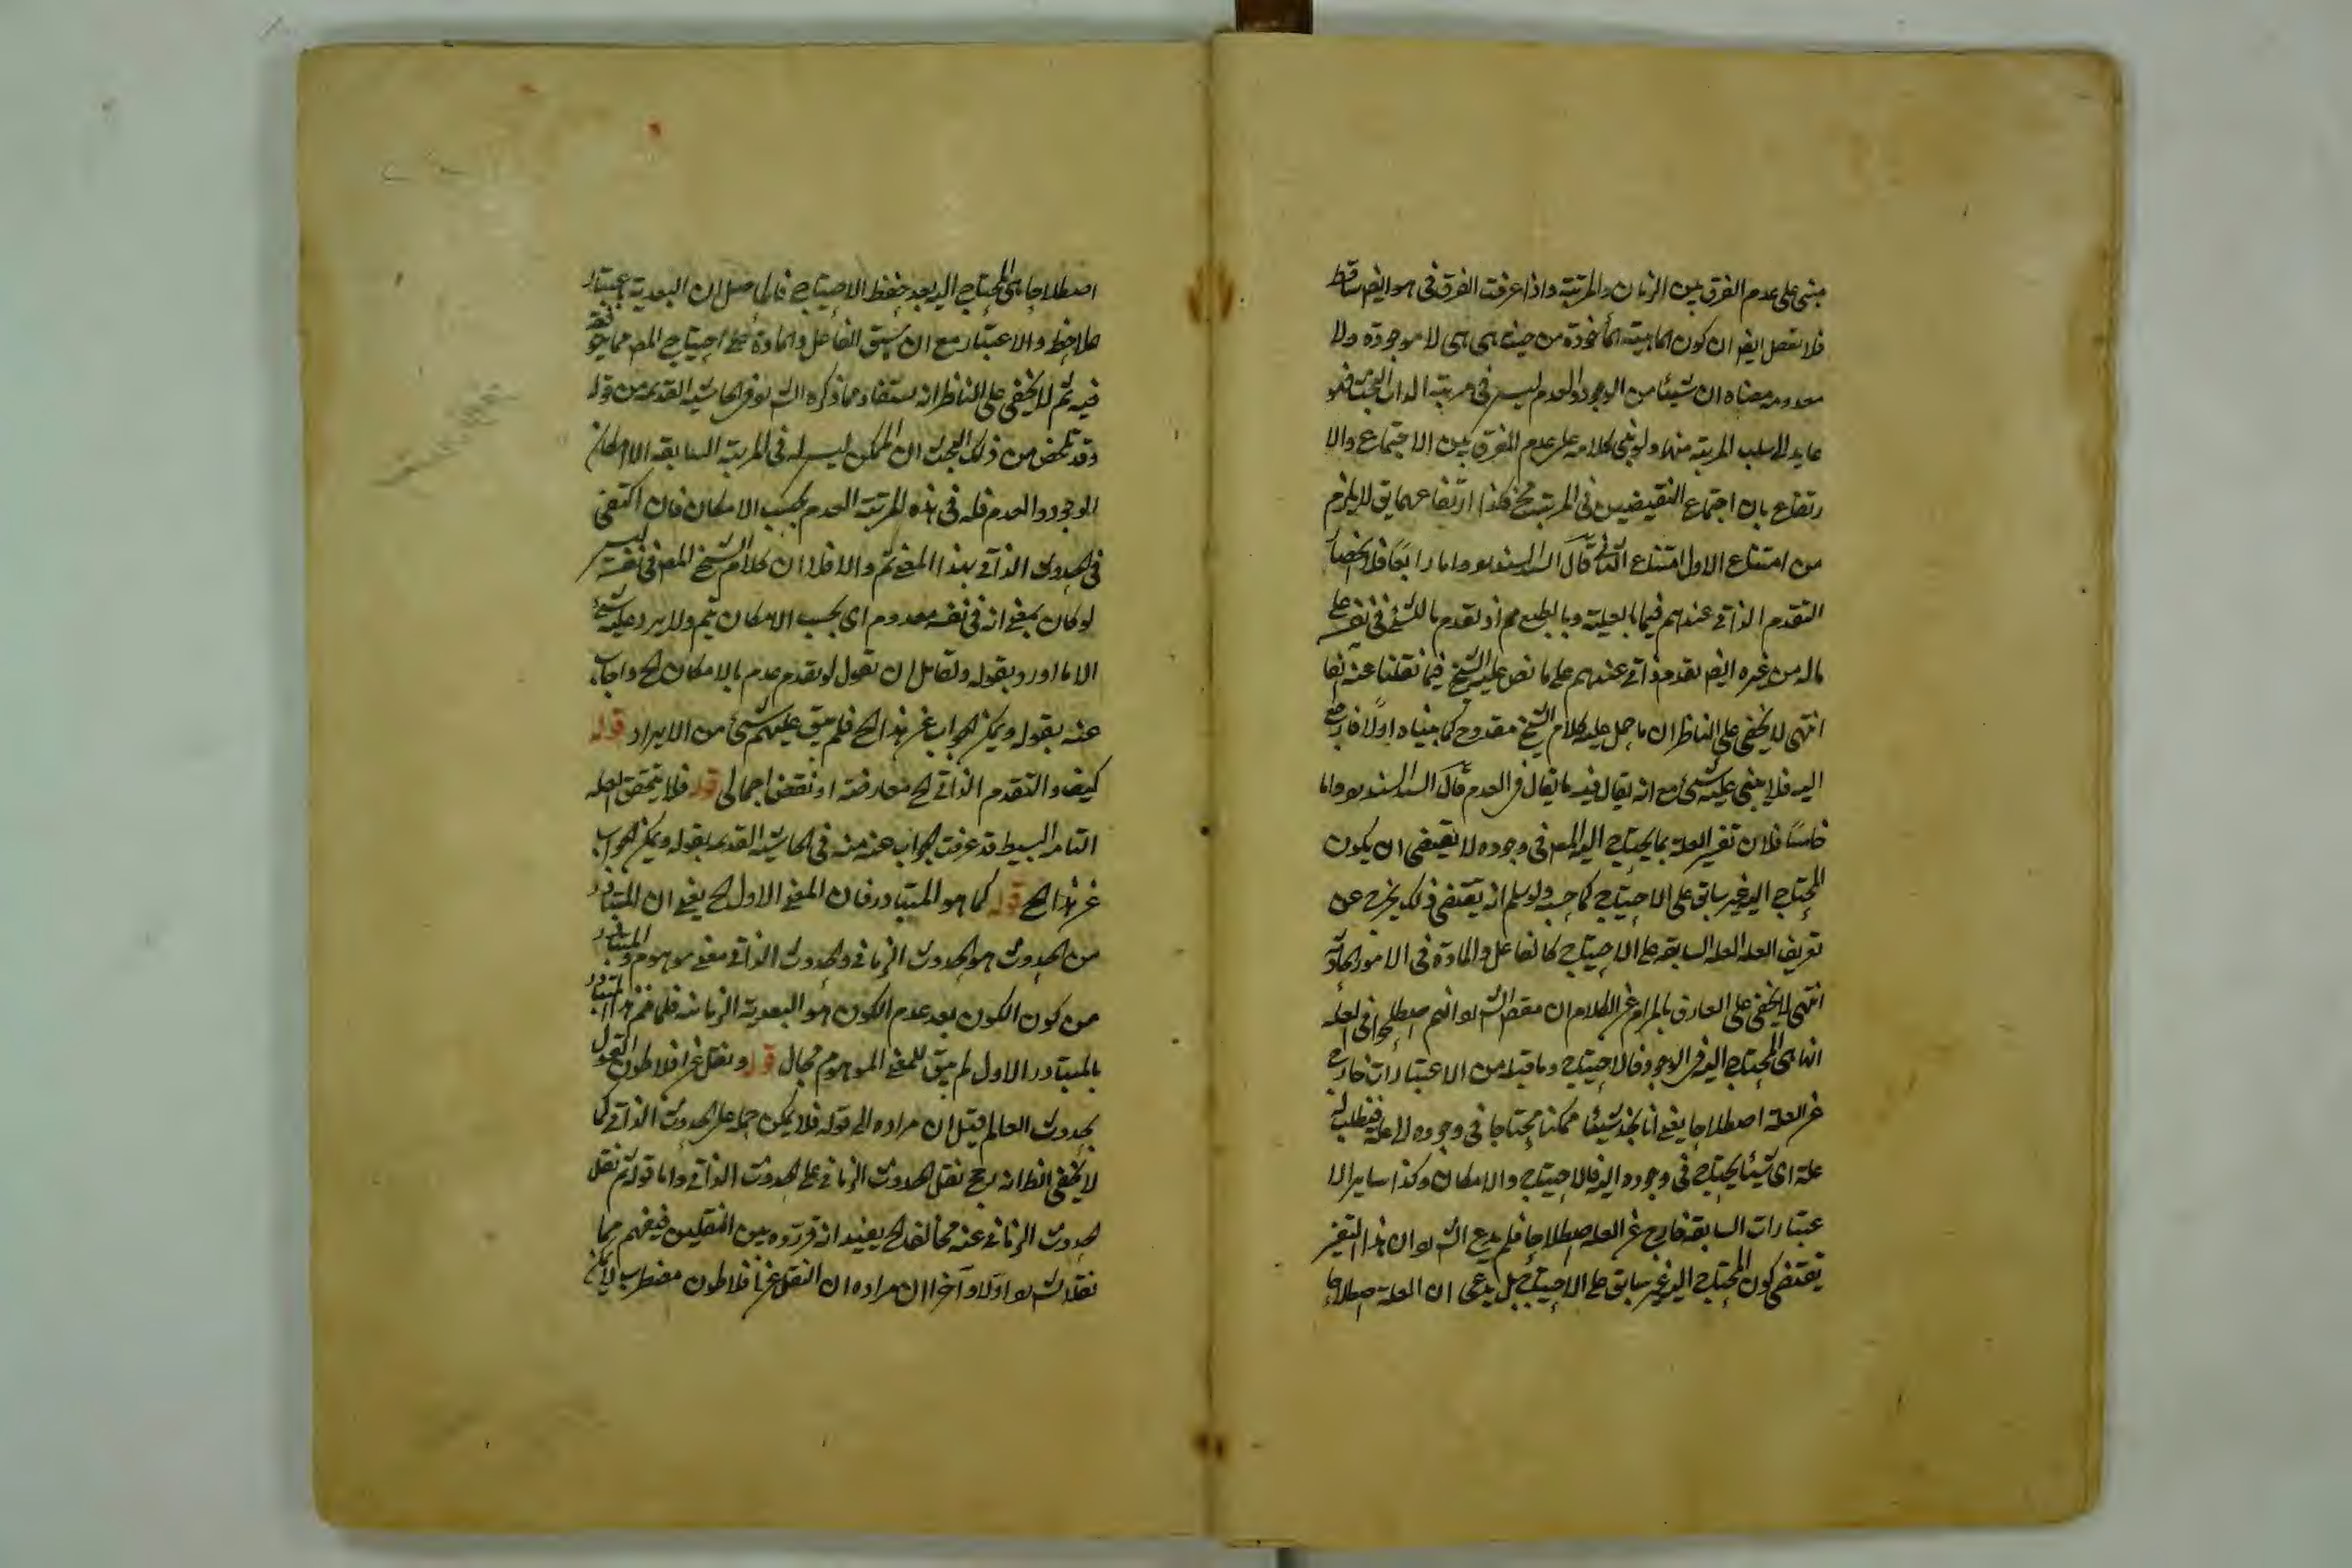 مبنى على عدم الفرق بين الزمان والمرتبة واذا عرفت الفرق فى هو ايضا ساقط
فلا نفصل ايضا ان كون الماهية المأخوذة من حيث هى هى لا موجودة ولا
معدومة معناه ان شيئا من الوجود والعدم ليس فى مرتبة الذات البحت فهو
عايد الى سلب المرتبة منها ولو بنى كلامه على عدم الفرق بين الاجتماع والا
رتفاع بان اجتماع النقيضين فى المرتبة مح فكذا ارتفاعهما يق لا يلزم
من امتناع الاول امتناع الثانى قال السيد السند واما رابعا فلانحصار
التقدم الذاتى عندهم فيما بالعلية وبالطبع مم اذ تقدم ما للشئ فى نفسه على
ماله من غيره ايضا تقدم ذاتى عندهم على ما نص عليه الشيخ فيما نقلنا عنه انفا
انتهى لا يخفى على الناظر ان ما حمل عليه كلام الشيخ مقدوح كما بيناه اولا فارجع
اليه فلا يبنى عليه شئ مع انه يقال فيه ما يقال فى العدم قال السيد السند واما
خامسا فلان تفسير العلة بما يحتاج اليه المع فى وجوده لا يقتضى ان يكون
المحتاج اليه غير سابق على الاحتياج كما حسبه ولو سلم انه يقتضى ذلك يخرج عن
تعريف العلة العلة السابقة على الاحتياج كالفاعل والمادة فى الامور الحادثة
انتهى لا يخفى على العارف بالمرام من الكلام ان مقص الش هو انهم اصطلحوا فى العلة
انها هى المحتاج اليه فى الوجود فالاحتياج وما قبله من الاعتبارات خارج
عن العلة اصطلاحا يعنى انا نجد شيئا ممكنا محتاجا فى وجوده الى علة فيطلب له
علة اى شيئا يحتاج فى وجوده اليه فالاحتياج والامكان وكذا ساير الا
عتبارات السابقة خارج عن العلة اصطلاحا فلم يدع الش ان هذا التفسير
يقتضى كون المحتاج اليه غير سابق على الاحتياج بل يدعى ان العلة اصطلاحا
اصطلاحا هى المحتاج اليه بعد حفظ الاحتياج فالحاصل ان البعدية باعتبار
ملاحظ والاعتبار مع ان سبق الفاعل والمادة على احتياج المع مما
فيه ثم لا يخفى على الناظر انه يستفاد مما ذكره الش فى الحاشية القديمة من قوله
وقد تلخص من ذلك البحث ان الممكن ليس له فى المرتبة السابقة الا امكان
الوجود والعدم فله فى هذه المرتبة العدم بحسب الامكان فان اكتفى
فى الحدوث الذاتى بهذا المعنى تم والا فلا ان كلام الشيخ المع فى نفسه ليس
لو كان بمعنى انه فى نفسه معدوم اى بحسب الامكان يتم ولا يرد عليه شئ
الا ما اورد بقوله ولقائل ان نقول لو تقدم عدم بالامكان الخ واجاب
عنه بقوله ويمكن الجواب عن هذا الخ فلم يبق عليهم شئ من الايراد قوله
كيف والتقدم الذاتى الخ معارضة او نقض اجمالى قوله فلا يتحقق العلة
التامة البسيط قد عرفت الجواب عنه منه فى الحاشية القديمة بقوله ويمكن الجواب
عن هذا الخ قوله كما هو المتبادر فان المعنى الاول الخ يعنى ان المتبادر
من الحدوث هو الحدوث الزمانى والحدوث الذاتى معنى موهوم والمتبادر
من كون الكون بعد عدم الكون هو البعدية الزمانية فلما
بالمتبادر الاول لم يبق للمعنى الموهوم مجال قوله ونقل عن افلاطون القول
بحدوث العالم فقيل ان مراده الى قوله فلا يمكن حمله على الحدوث الذاتى كما
لا يخفى الظ انه رجح نقل الحدوث الزمانى على الحدوث الذاتى واما قوله ثم نقل
الحدوث الزمانى عنه مخالفا الخ يفيد انه قرروه بين النقلين فيفهم مما
نقله الش اولا وآخرا ان مراده ان النقل عن افلاطون مضطرب